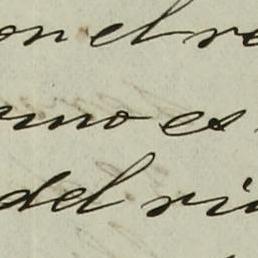 on el re
rmo es
del ri